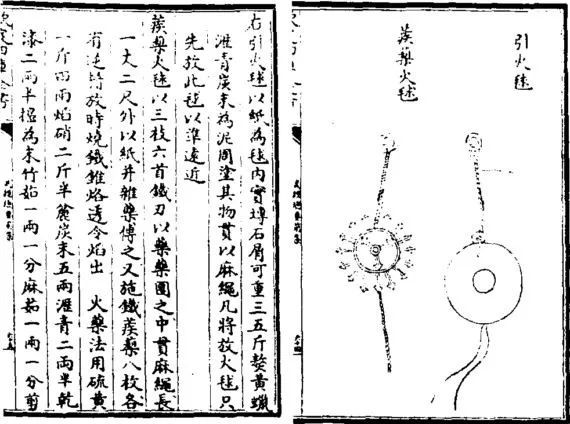 引火毬
蒺梨火毬
右引火毬以紙為毬内實塼石屑可重三五斤熬黄蠟
瀝青炭末為泥周塗其物貫以麻繩凡將放火毬只
先放此毬以準遠近
蒺梨火毬以三枝六首鐵刃以藥藥團之中貫麻繩長
一丈二尺外以紙并雜藥傅之又施鐵蒺梨八枚各
有逆鬚放時燒鐵錐烙透令焰出 火藥法用硫黄
一斤四兩焰硝二斤半麄炭末五兩瀝青二兩半乾
漆二兩半擣為末竹茹一兩一分麻茹一兩一分剪